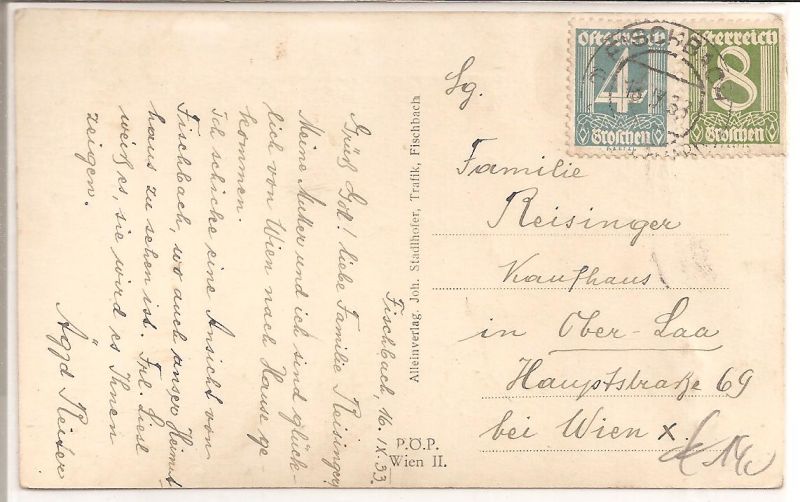 Fischbach, 16.IX.33.
Grüß Gott! Liebe Familie Reisinger,
Meine Mutter und ich sind glück-
lich von Wien nach Hause ge-
kommen.
Ich schicke eine Ansicht von
Fischbach, wo auch unser Heimat-
haus zu sehen ist. Frl. Liesl
weiß es, sie wird es Ihnen
zeigen.
Reiter
Alleinverlag, Joh. Stadlhofer, Trafik, Fischbach
P.Ö.P.
Wien II.
Österreich
4
Groschen
Österreich
8
Groschen
FISCHBACH
Sg.
Familie
Reisinger
Kaufhaus
in Ober-Laa
Hauptstraße 69
bei Wien X.